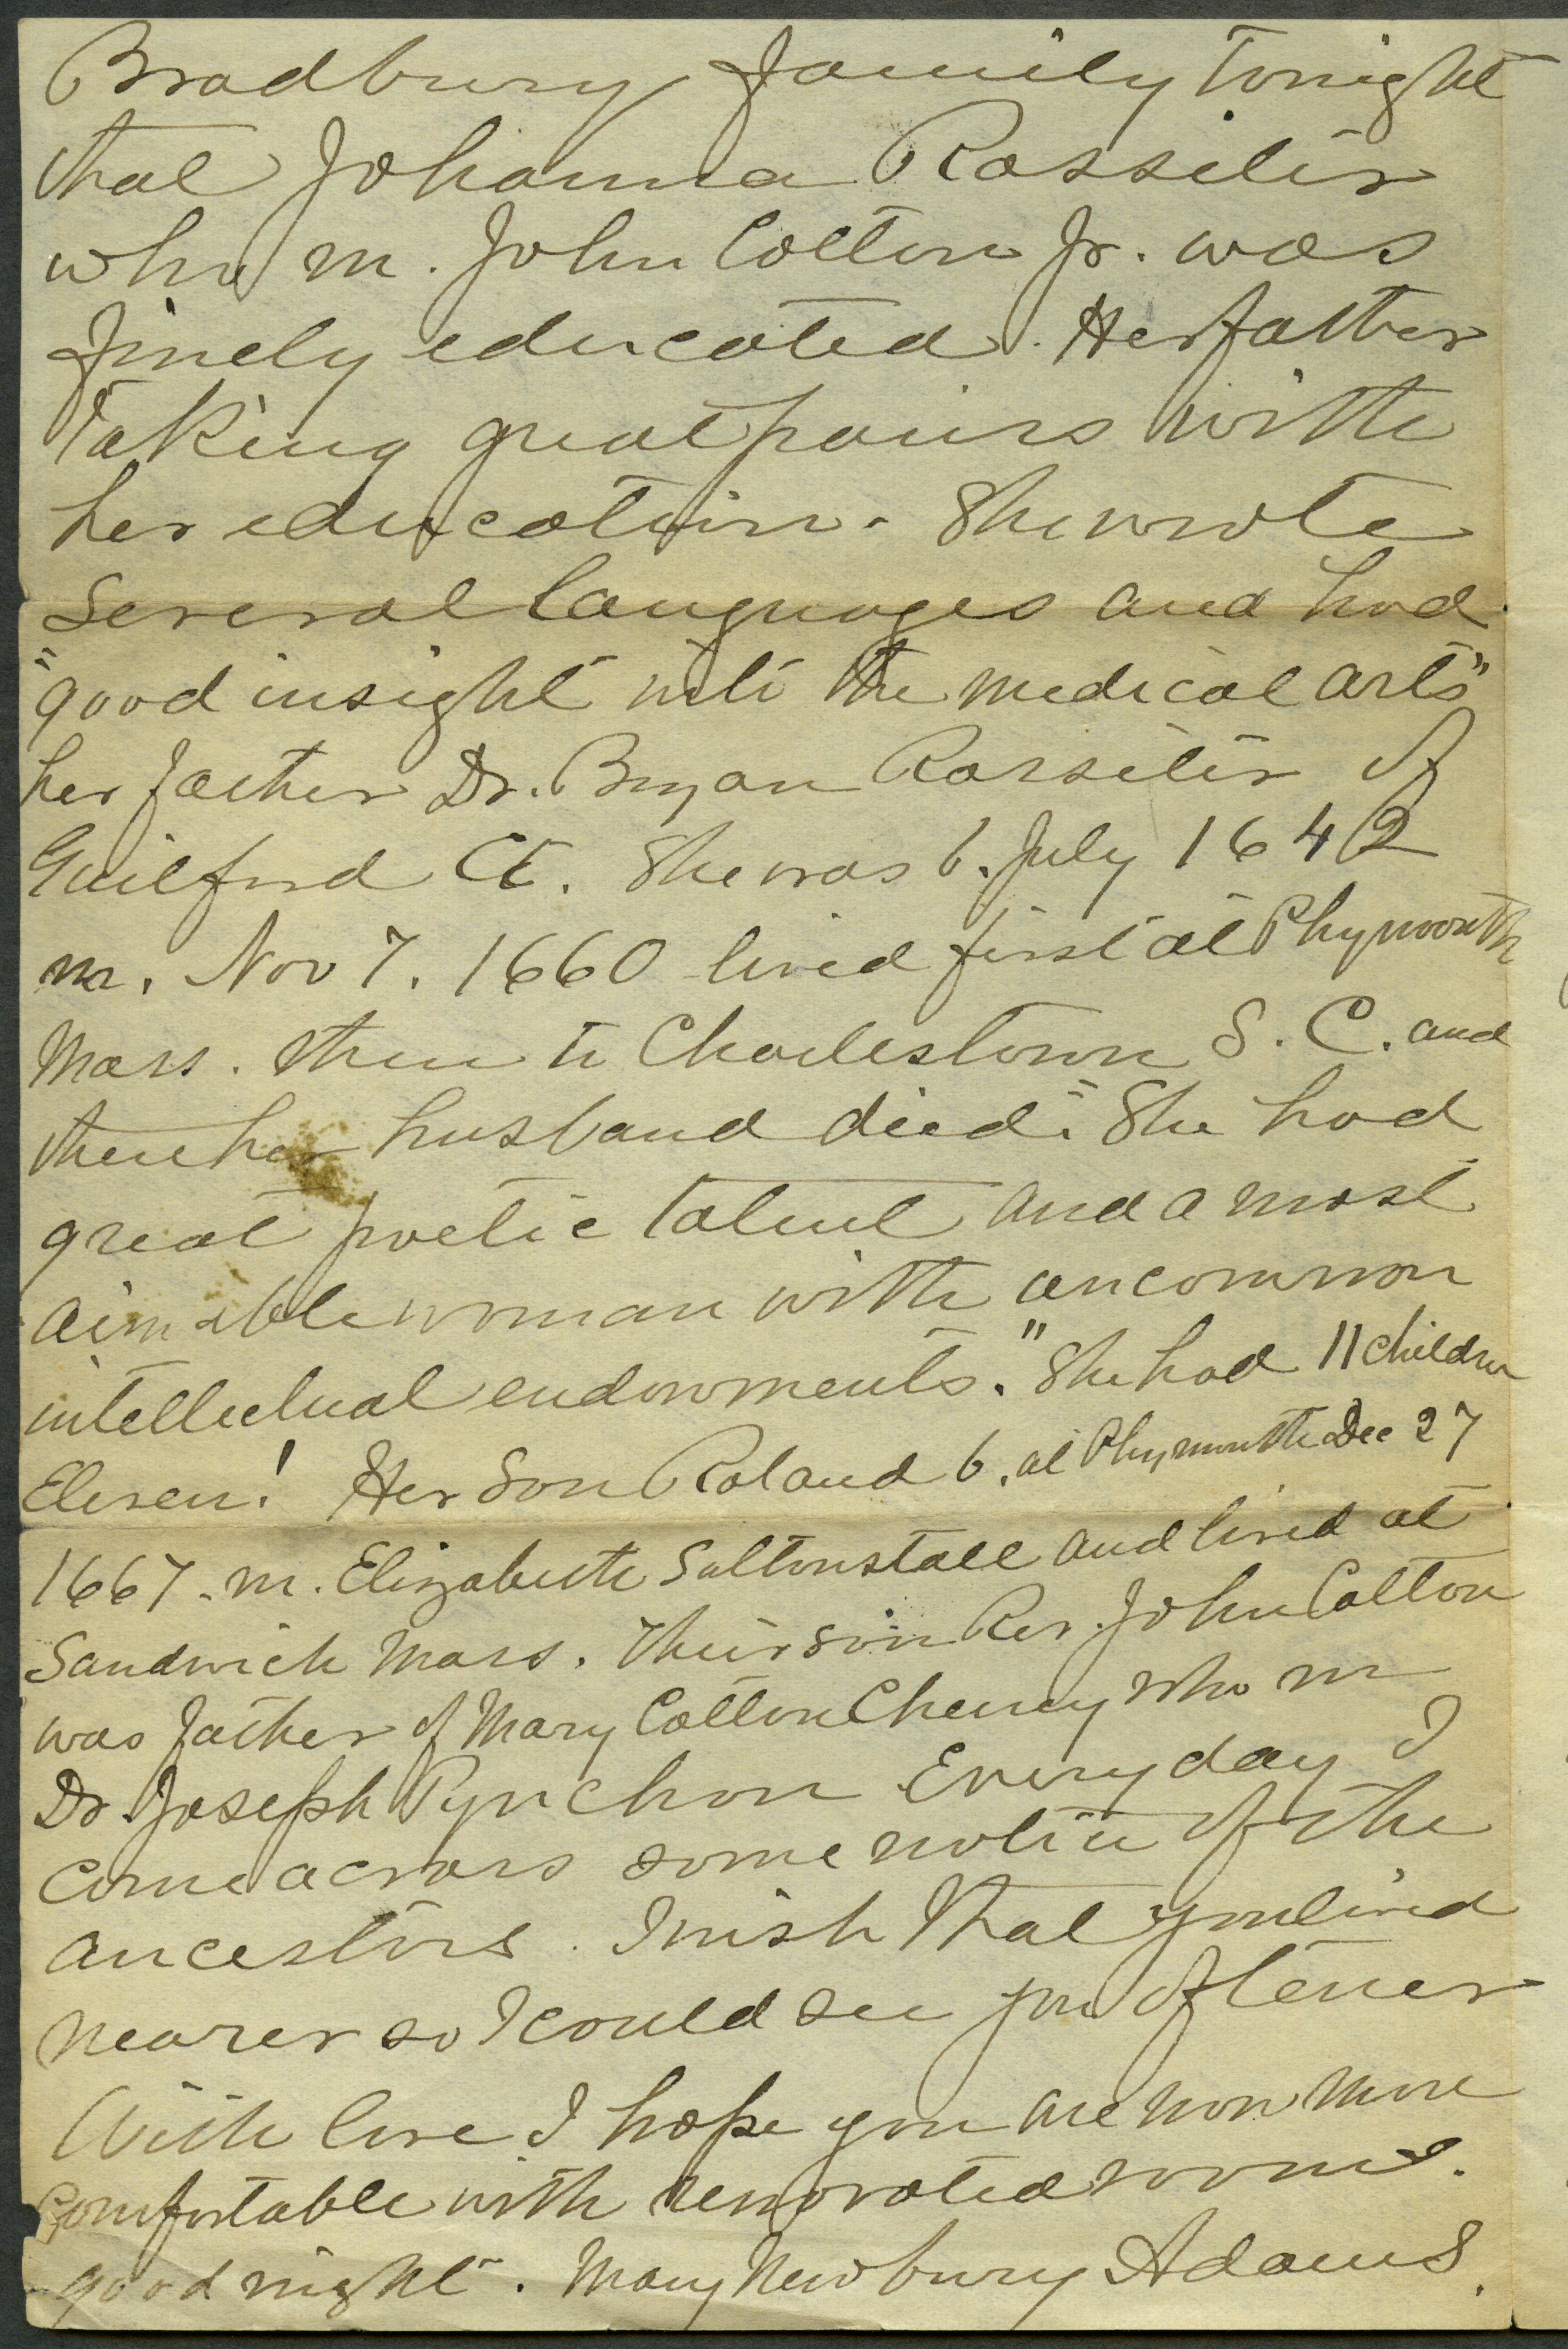 Bradbury family tonight
that Johanna Rossiter
who m. John Cotton Jr. was
finely educated. Her father
taking great pains with
her education. She wrote
several languages and had
"good insight into the medical arts"
her father Dr. Bryan Rossiter of
Guilford Ct. She was b. July 1642
m. Nov 7. 1660 lived first at Plymouth
Mass. then to Charlestown S. C. and
there her husband died. "She had
great poetic talent and a most
aimable woman with uncommon
intellectual endowments." She had 11 children
Eleven! Her son Roland b. at Plymouth Dec 27
1667. m. Elizabeth Saltonstall and lived at
Sandwich Mass. Their son Rev. John Cotton
was father of Mary Cotton Cheney who m
Dr. Joseph Pynchon Every day I
come across some notice of the
ancestors. I wish that you lived
nearer so I could see you oftener
With love I hope you are now more
Comfortable with renovated rooms.
good night. Mary Newbury Adams.